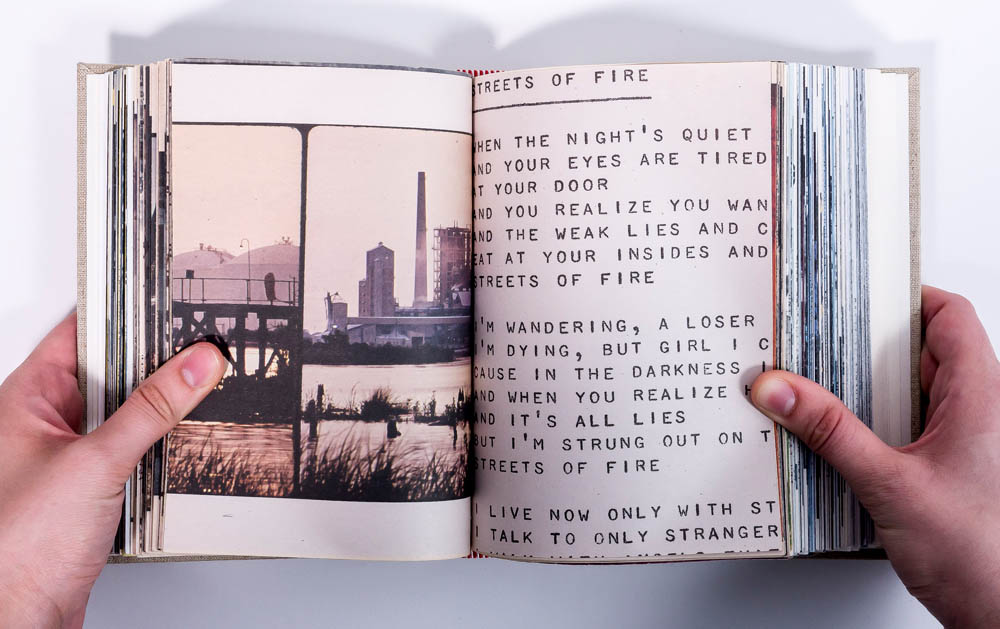 STREETS OF FIRE
HEN THE NIGHT'S QUIET
ND YOUR EYES ARE TIRED
AT YOUR DOOR
AND YOU REALIZE YOU WAN
AND THE WEAK LIES AND C
EAT AT YOUR INSIDES AND
STREETS OF FIRE
I'M WANDERING, A LOSER
I'M DYING, BUT GIRL I C
CAUSE IN THE DARKNESS I
AND WHEN YOU REALIZE H
AND IT'S ALL LIES
BUT I'M STRUNG OUT ON T
STREETS OF FIRE
I LIVE NOW ONLY WITH ST
I TALK TO ONLY STRANGER